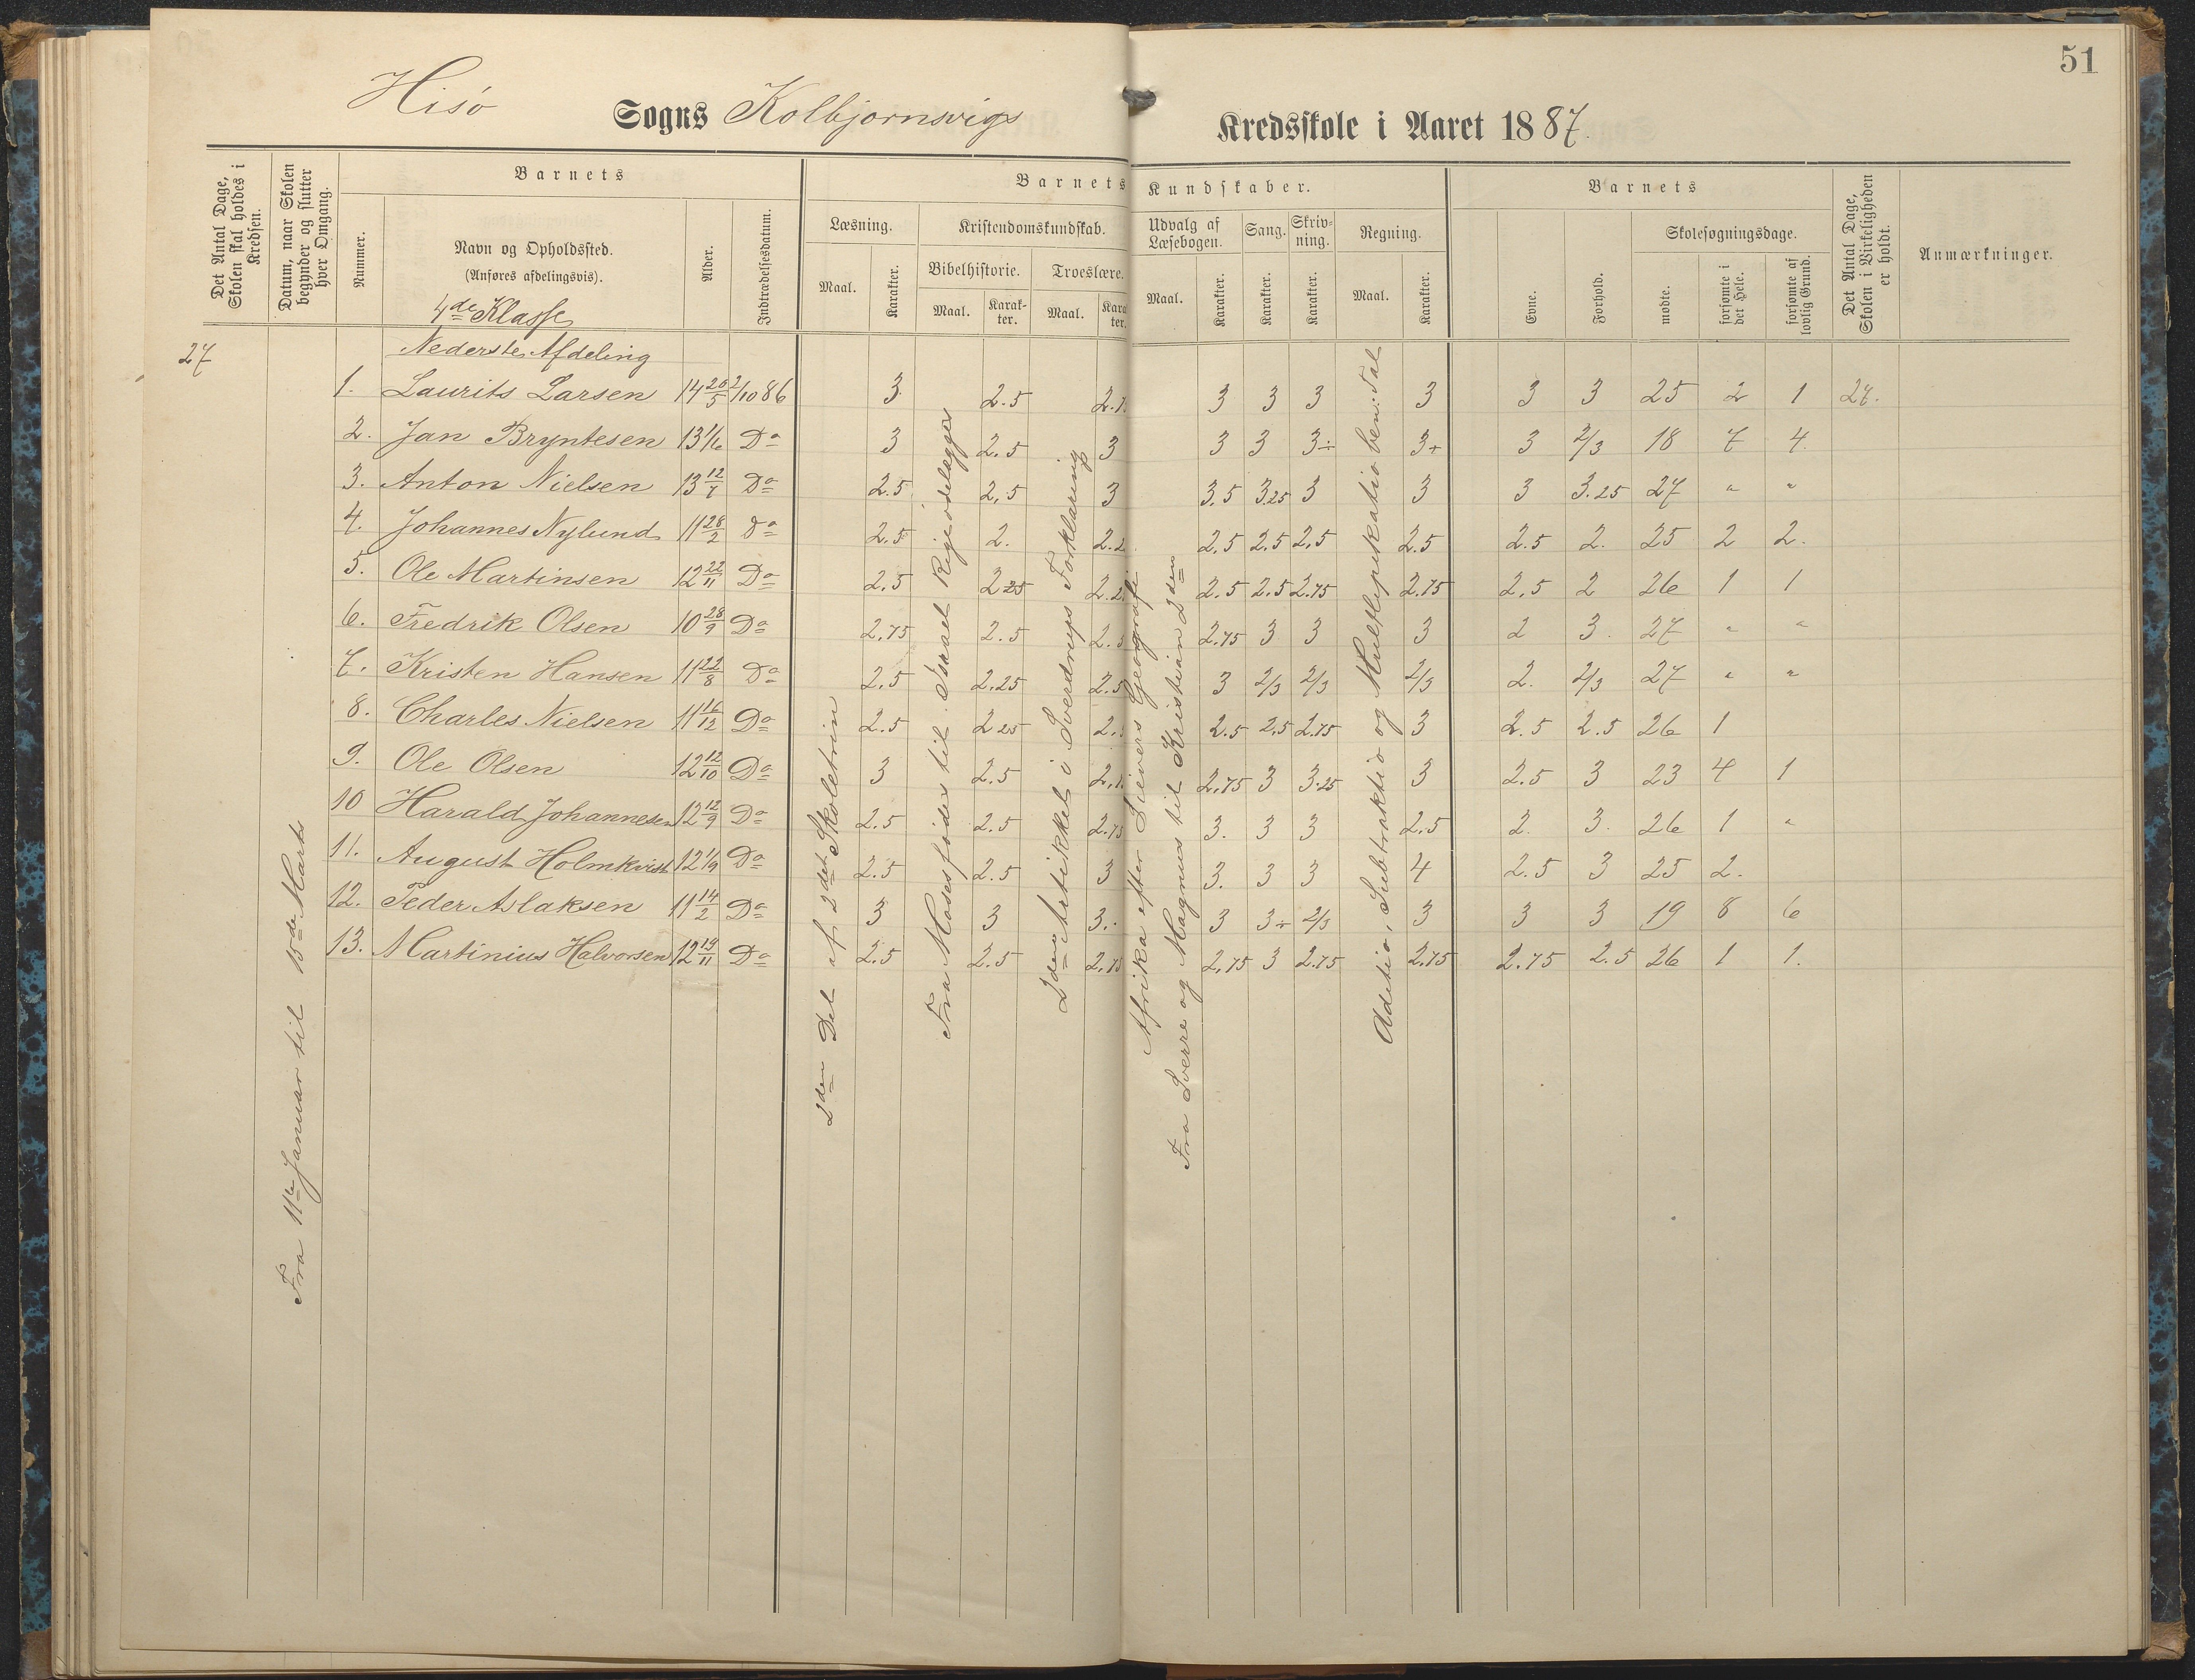 51
Hisö Sogns Kolbjornsvigs Kredsskole i Aaret 1887.
Det Antal Dage, Skolen skal holdes i Kredsen.
Datum, naar Skolen begynder og slutter hver Omgang.
Barnets
Nummer.
Navn og Opholdssted.
(Anføres afdelingsvis).
Alder.
Indtrædelsesdatum.
Barnets Kundskaber.
Læsning.
Maal.
Karakter.
Kristendomskundskab.
Bibelhistorie.
Maal.
Karakter.
Troeslære.
Maal.
Karakter.
Udvalg af Læsebogen.
Maal.
Karakter.
Sang.
Karakter.
Skrivning.
Karakter.
Regning.
Maal.
Karakter.
Barnets
Evne.
Forhold.
Skolesøgningsdage.
mødte.
forsømte i det Hele.
forsømte af lovlig Grund.
Det Antal Dage, Skolen i Virkeligheden er holdt.
Anmærkninger.
4de Klasse
Nederste Afdeling
27
1. Laurits Larsen 14 20/5 2/10 86 3 2.5 2.7 3 3 3 3 3 3 25 2 1 27.
2. Jan Bryntesen 13 1/6 Do 3 2.5 3 3 3 3÷ 3+ 3 2/3 18 7 4
3. Anton Nielsen 13 12/7 Do 2.5 2.5 3 3.5 3.25 3 3 3 3.25 27 " "
4. Johannes Nylund 11 28/2 Do 2.5 2. 2.2 2.5 2.5 2.5 2.5 2.5 2. 25 2 2.
5. Ole Martinsen 12 22/11 Do 2.5 2.25 2.2 2.5 2.5 2.75 2.75 2.5 2 26 1 1
6. Fredrik Olsen 10 28/9 Do 2.75 2.5 2.5 2.75 3 3 3 2 3. 27 " "
7. Kristen Hansen 11 22/8 Do 2.5 2.25 2.5 3 2/3 2/3 2/3 2. 2/3 27 " "
8. Charles Nielsen 11 16/12 Do 2.5 2.25 2. 2.5 2.5 2.75 3 2.5 2.5 26 1
9. Ole Olsen 12 12/10 Do 3 2.5 2. 2.75 3 3.25 3 2.5 3 23 4 1
10 Harald Johannesen 12 12/9 Do 2.5 2.5 2.75 3. 3 3 2.5 2. 3. 26 1 "
11. August Holmkvist 12 1/9 Do 2.5 2.5 3 3. 3 3 4 2.5 3 25 2.
12. Peder Aslaksen 11 14/2 Do 3 3 3. 3 3÷ 2/3 3 3 3 19 8 6
13. Martinius Halvorsen 12 19/11 Do 2.5 2.5 2.75 2.75 3 2.75 2.75 2.75 2.5 26 1 1.
Fra 11te Januar til 15de Marts
2den Del af 2det Skoletrin
Fra Moses fødes til Israel Rige ødelægges
2den Artikkel i Sverdrups Forklaring
Afrika efter Sievers Geografi
Fra Sverre og Magnus til Kristian 2den
Aditio, Subtraktio og Multlipikatio ben. Tal